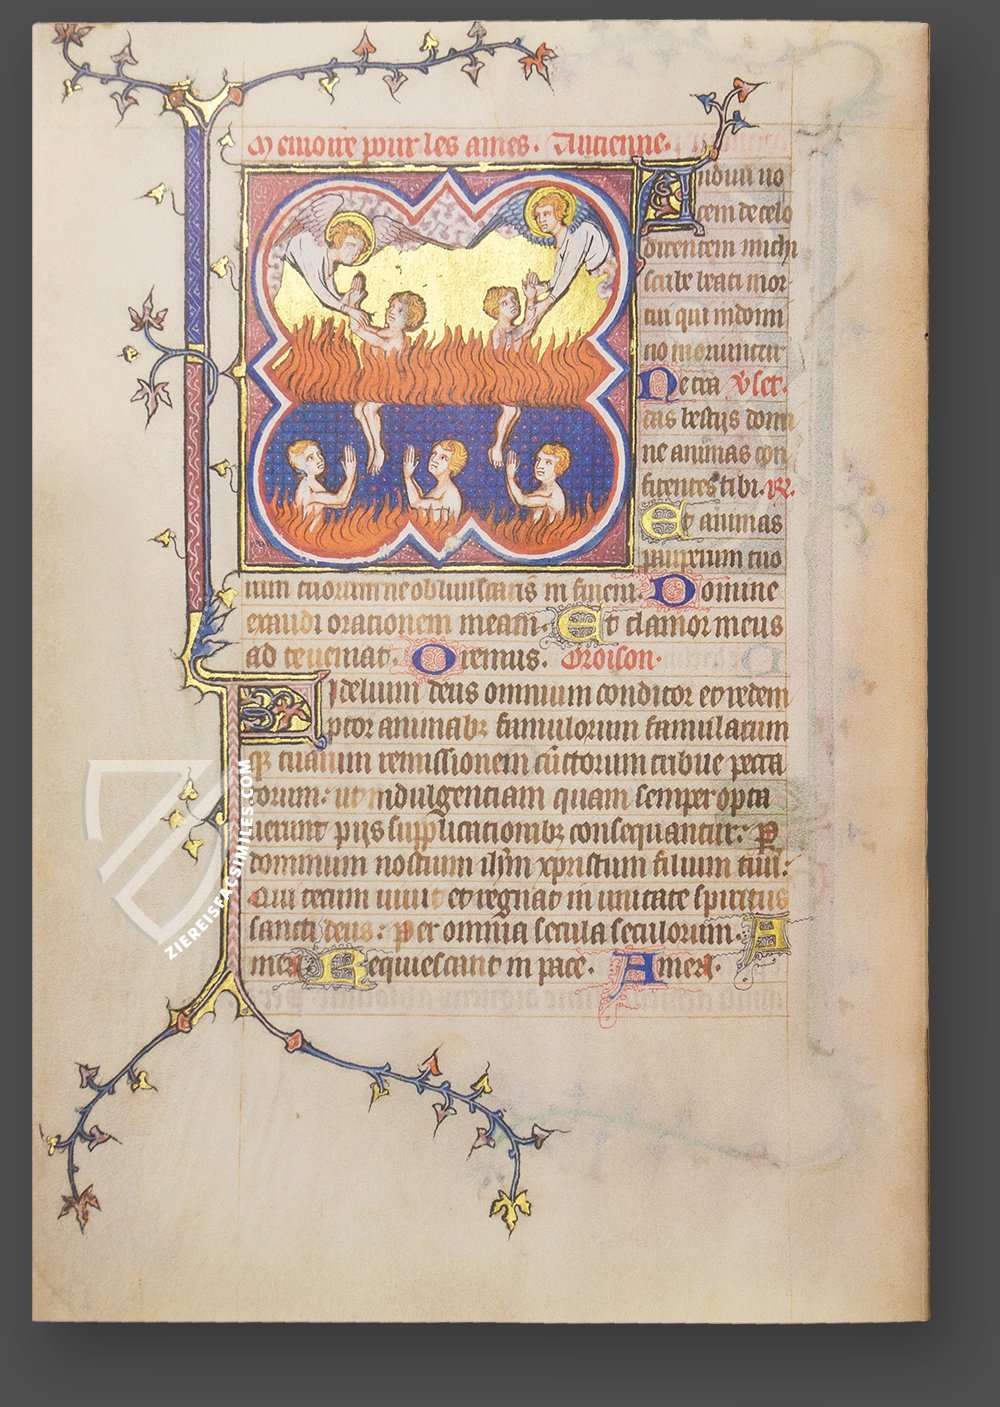 Memoire pour les ames. Antienne.
Audiui uo
cem de celo
dicentem michi
scribe beati mor
tui qui in domi
no moriuntur
Ne tra v̄set.
das bestijs domi
ne animas con
fitentes tibi. R.
Et animas
pauperum tuo
rum ne obliuiscaris in finem. Domine
exaudi orationem meam. Et clamor meus
ad te ueniat. Oremus. Oroison.
Fidelium deus omnium conditor et redem
ptor animabꝫ famulorum famularum
qꝫ tuarum remissionem cūctorum tribue pecca
torum: ut indulgenciam quam semper opta
uerunt pijs supplicationibꝫ consequantur: P
dominum nostrum ihm xpristum filium tuū:
Qui tecum uiuit et regnat in unitate spiritus
sancti deus: Per omnia secula seculorum. A
men Requiescant in pace. Amen.
ZIEREISFACSIMILES.COM